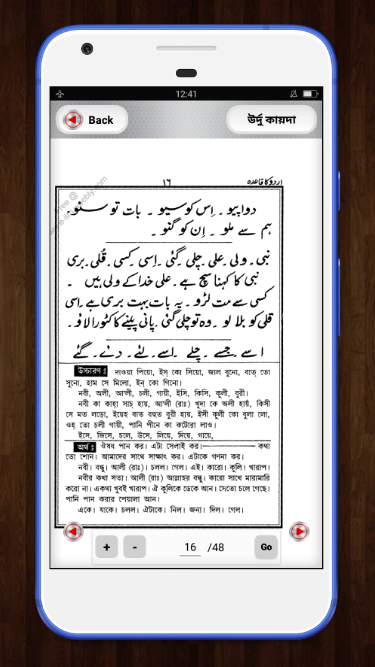 12:41
Back
উর্দু কায়দা
اردو کا قاعدہ
١٦
دوا پیو ۔ اِس کو سیو ۔ بات تو سنو۔
ہم سے ملو ۔ اِن کو گنو ۔
نبی ۔ ولی ۔ علی ۔ چلی ۔ گئی ۔ اِسی ۔ کسی ۔ قُلی ۔ بری
نبی کا کہنا سچ ہے ۔ علی خدا کے ولی ہیں ۔
کسی سے مت لڑو ۔ یہ بات بہت بری ہے ۔ اِسی
قلی کو بلا لو ۔ وہ تو چلی گئی ۔ پانی پینے کا کٹورا لاؤ ۔
اسے ۔ جسے ۔ چلے ۔ اُسے ۔ لئے ۔ دئے ۔ گئے
উচ্চারণ ঃ দাওয়া পিয়ো, ইস্ কো সিয়ো, জাল বুনো, বাত্ তো
সুনো, হাম সে মিলো, ইন্ কো গিনো।
নবী, অলী, আ'লী, চলী, গায়ী, ইসি, কিসি, কুলী, বুরী।
নবী কা কাহ্না সাচ্ হ্যায়, আলী (রাঃ) খুদা কে অলী হ্যাঁই, কিসী
সে মত লড়ো, ইয়েহ বাত বহুত বুরী হ্যায়, ইসী কুলী কো বুলা লো,
ওহ্ তো চলী গায়ী, পানি পীনে কা কটোরা লাও।
ইসে, জিসে, চলে, উসে, লিয়ে, দিয়ে, গায়ে,
অর্থ ঃ ঔষধ পান কর। এটা সেলাই কর। কথা
তো শোন। আমাদের সাথে সাক্ষাৎ কর। এটাকে গণনা কর।
নবী। বন্ধু। আলী (রাঃ)। চলল। গেল। এই। কারো। কুলি। খারাপ।
নবীর কথা সত্য। আলী (রাঃ) আল্লাহর বন্ধু। কারো সাথে মারামারি
করো না। একথা খুবই খারাপ। ঐ কুলিকে ডেকে আন। সেতো চলে গেছে।
পানি পান করার পেয়ালা আন।
একে। যাকে। চলল। ঐটাকে। নিল। জন্য। দিল। গেল।
+ - 16 /48 Go